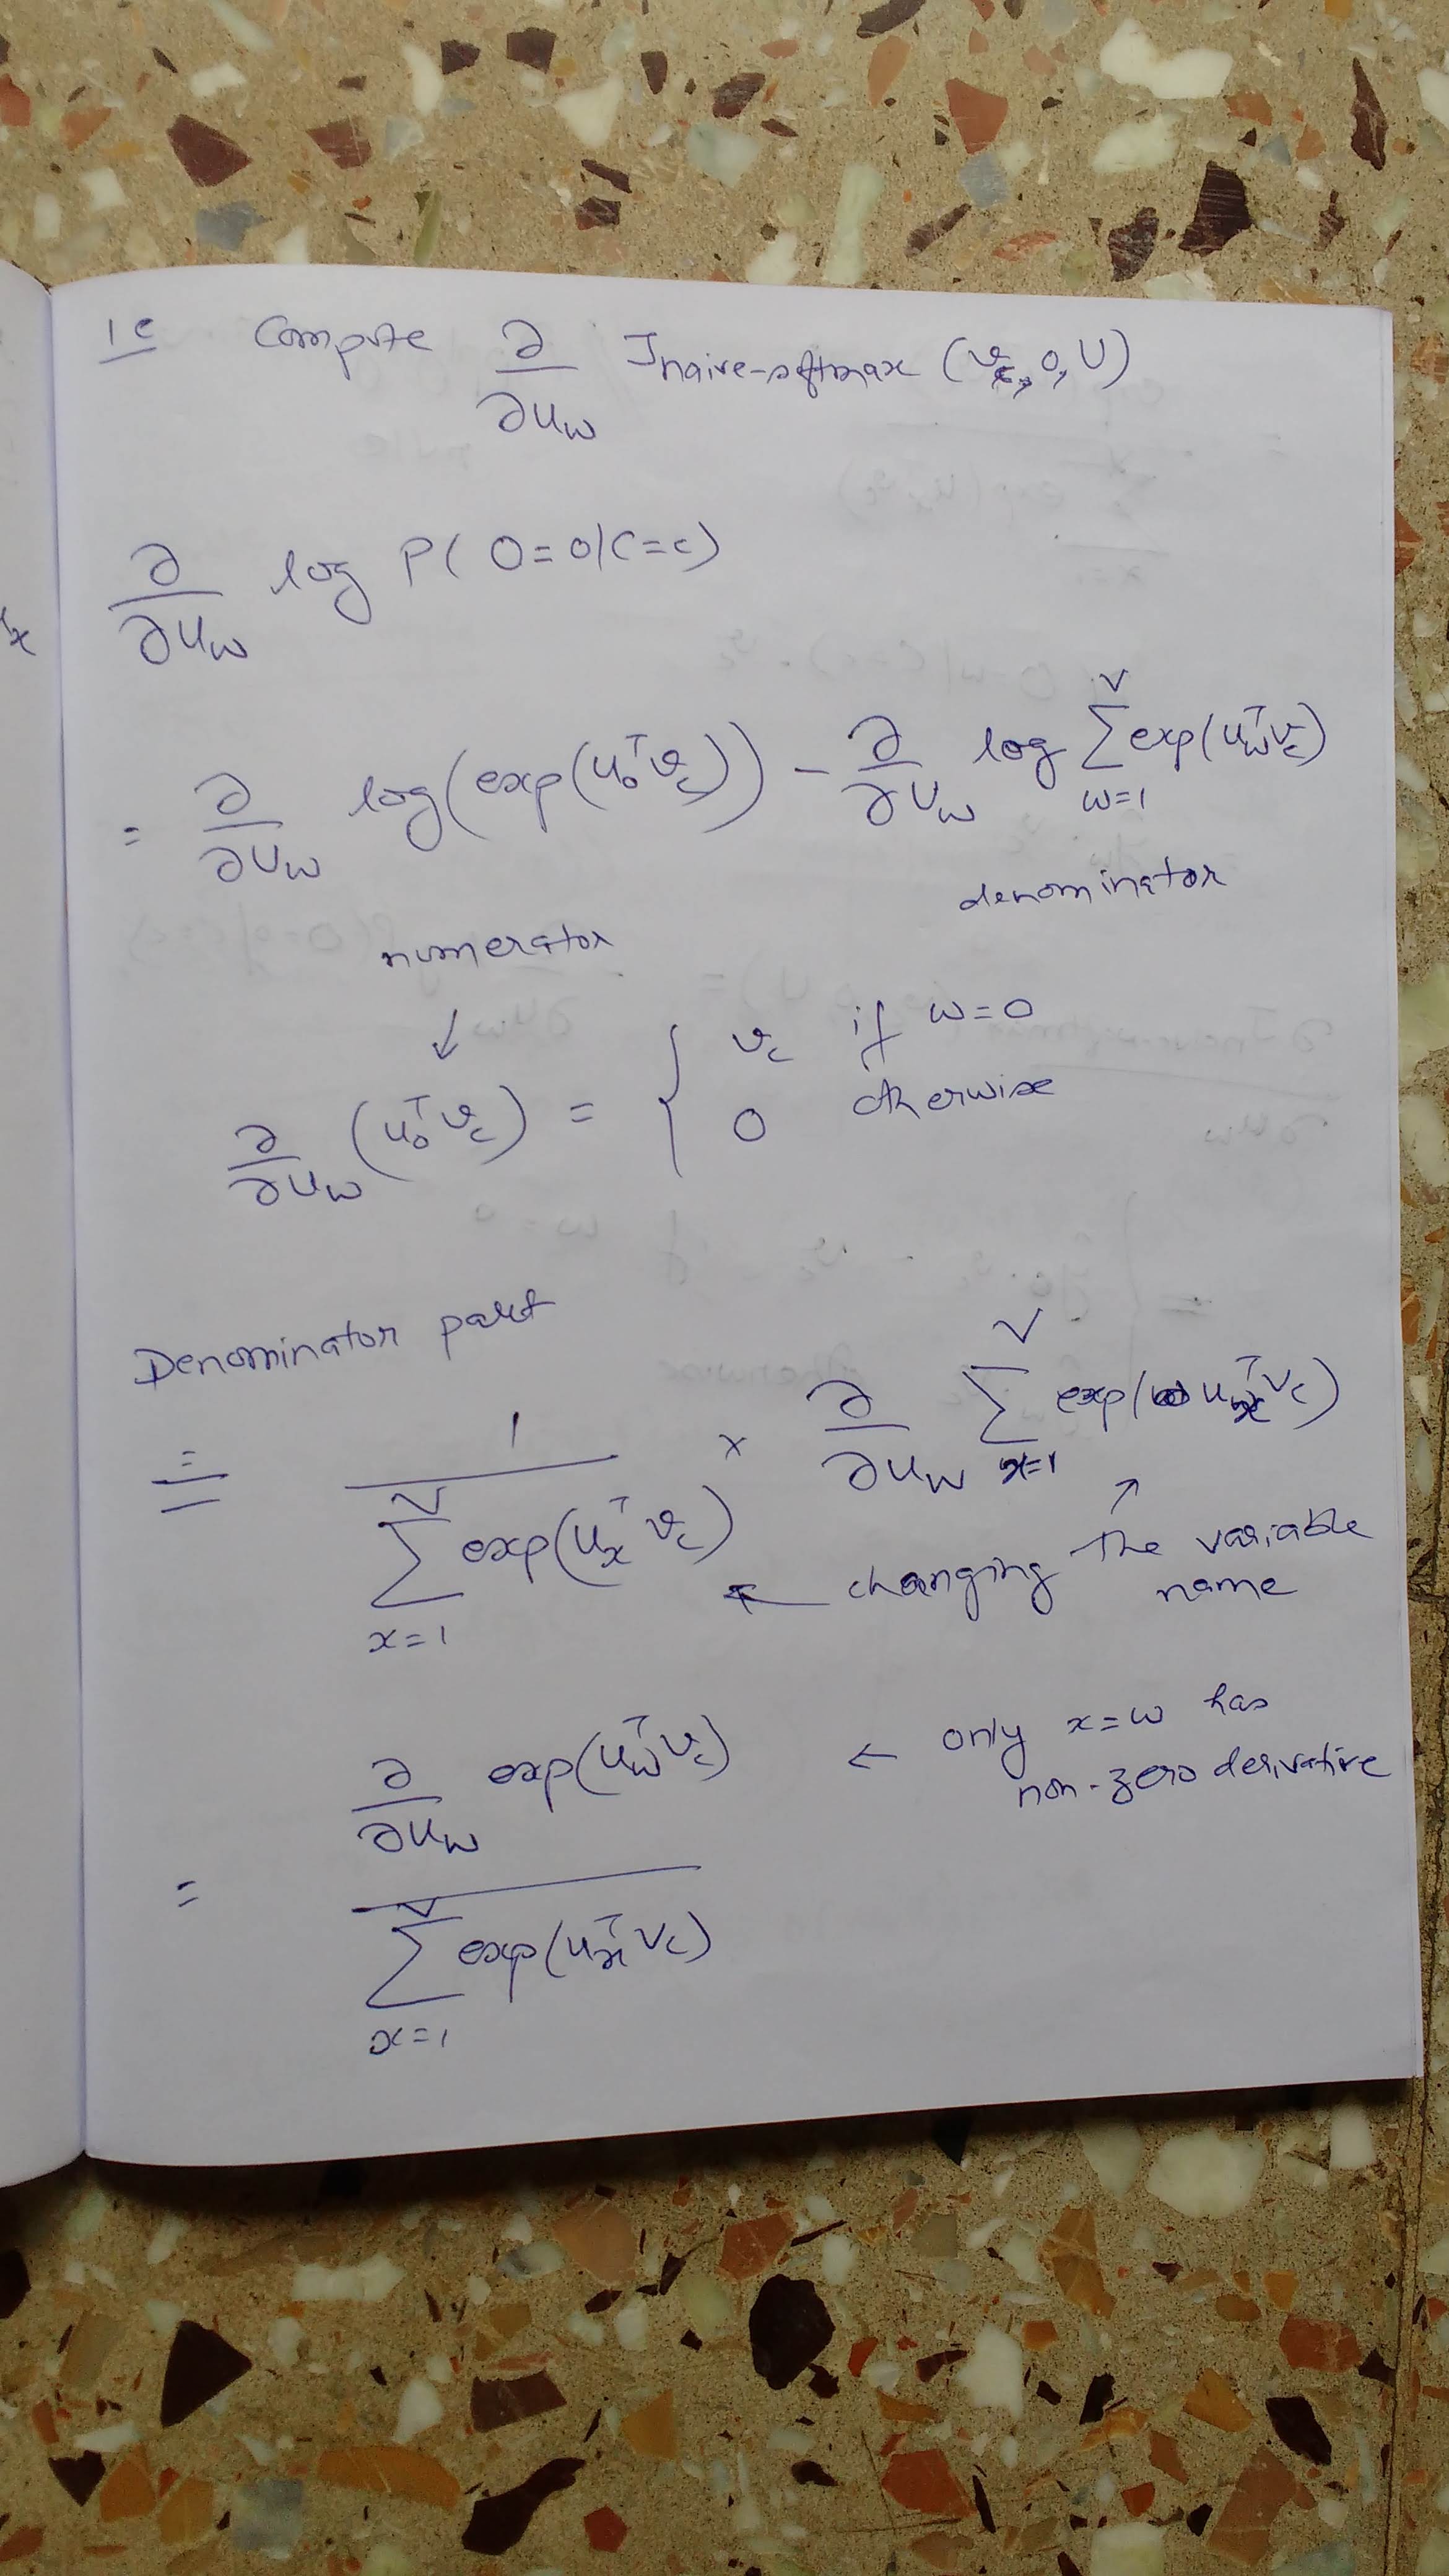 1c Compute ∂/∂u_w J_naive-softmax (v_c, o, U)
∂/∂u_w log P( O=o | C=c)
= ∂/∂u_w log(exp(u_o^T v_c)) - ∂/∂u_w log ∑_{w=1}^{V} exp(u_w^T v_c)
numerator denominator
↓
∂/∂u_w (u_o^T v_c) = { v_c if w=o
0 otherwise
Denominator part
= 1 / ∑_{x=1}^{V} exp(u_x^T v_c) × ∂/∂u_w ∑_{x=1}^{V} exp(u_x^T v_c)
← changing the variable ↗
name
= ∂/∂u_w exp(u_w^T v_c) / ∑_{x=1}^{V} exp(u_x^T v_c) ← only x=w has
non-zero derivative